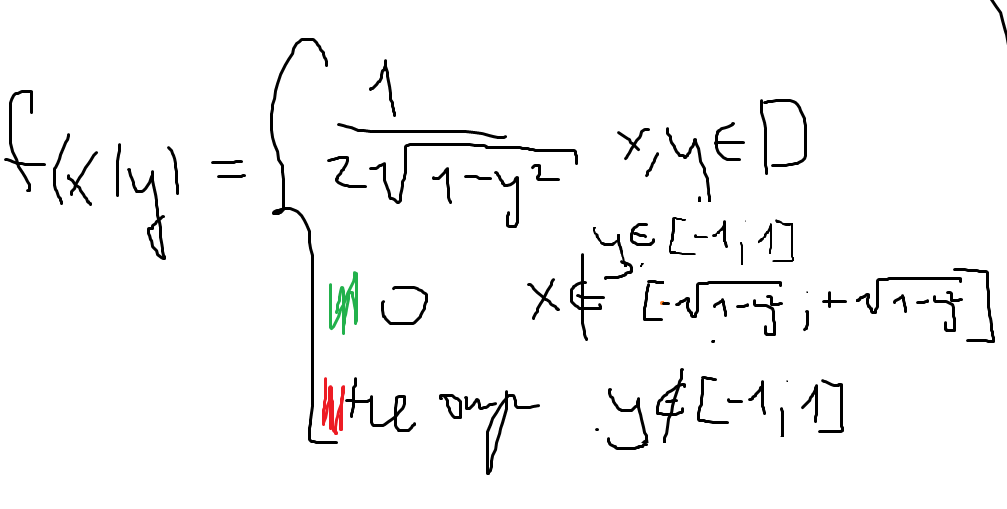 f(x|y) = { 1 / 2√1-y² x,y∈D
y∈[-1; 1]
0 x∉[-√1-y²; +√1-y²]
не опр y∉[-1; 1]